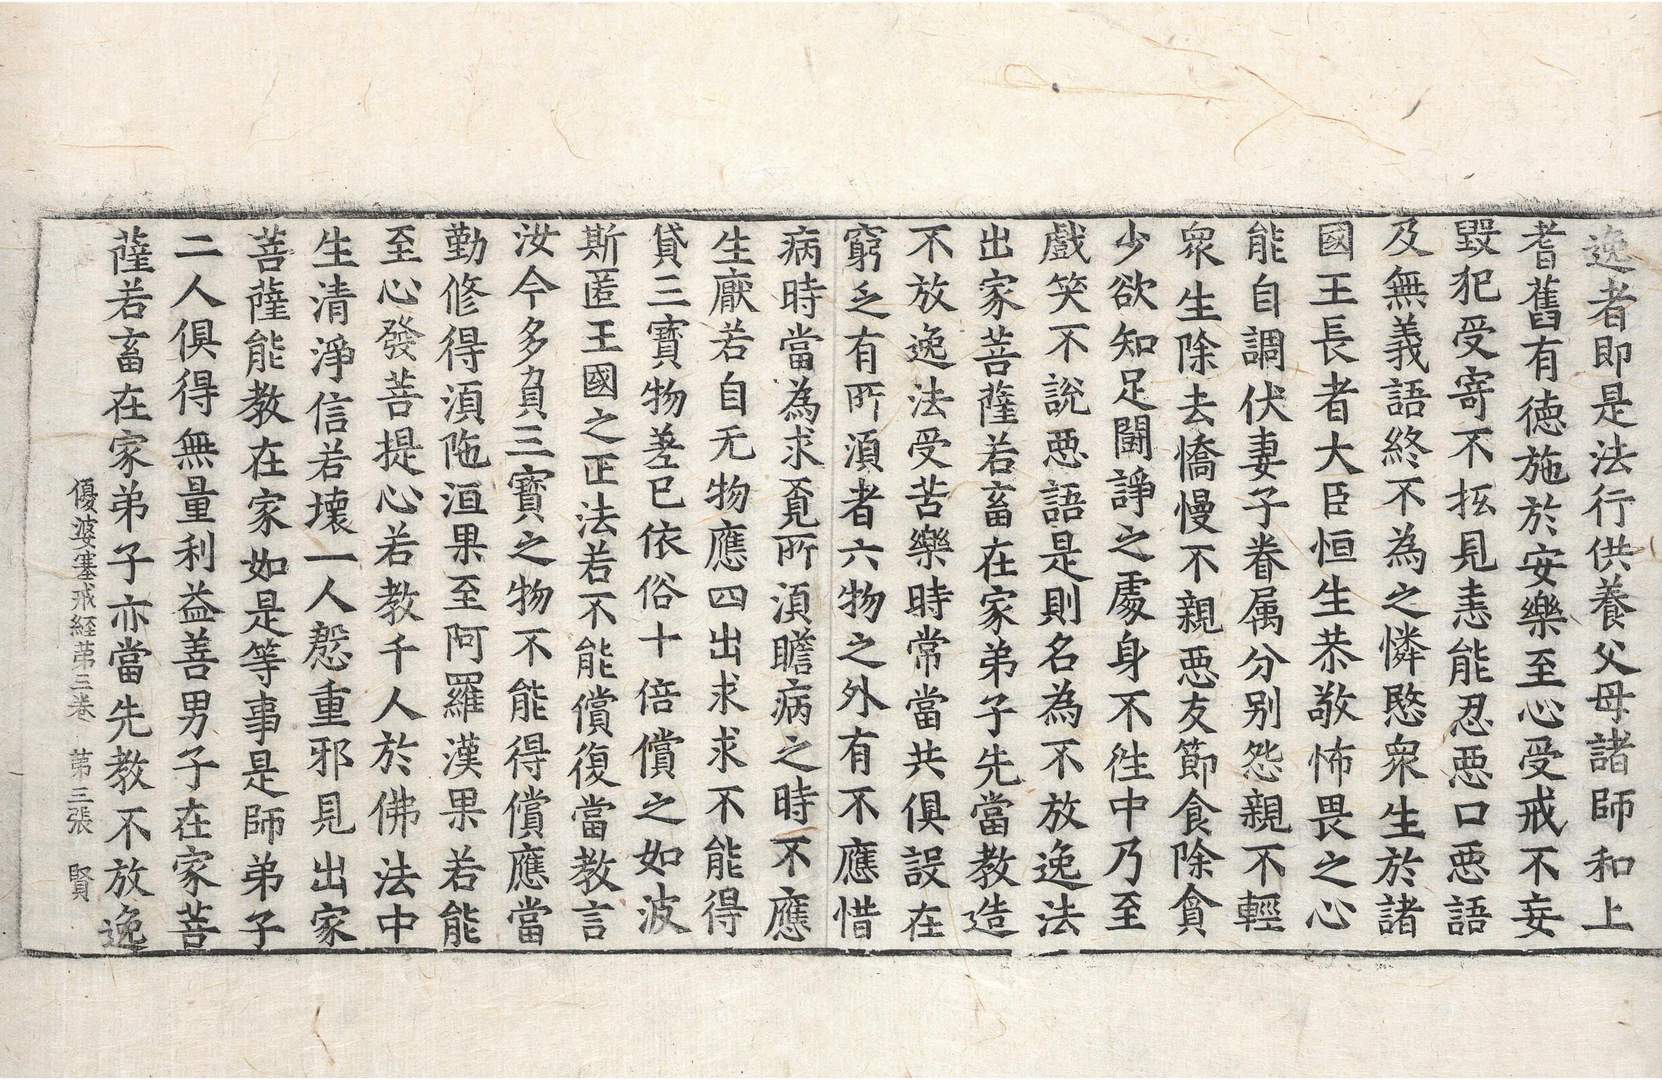 逸者即是法行供養父母諸師和上
耆舊有徳施於安樂至心受戒不妄
毀犯受寄不抂見恚能忍惡口惡語
及無義語終不為之憐愍衆生於諸
國王長者大臣恒生恭敬怖畏之心
能自調伏妻子眷属分别怨親不輕
衆生除去憍慢不親惡友節食除貪
少欲知足闘諍之處身不徃中乃至
戲笑不說惡語是則名為不放逸法
出家菩薩若畜在家弟子先當教造
不放逸法受苦樂時常當共俱設在
窮乏有所湏者六物之外有不應惜
病時當為求覔所湏瞻病之時不應
生厭若自无物應四出求求不能得
貸三寳物差已依俗十倍償之如波
斯匿王國之正法若不能償復當教言
汝今多負三寳之物不能得償應當
勤修得湏陁洹果至阿羅漢果若能
至心發菩提心若教千人於佛法中
生清淨信若壞一人慇重邪見出家
菩薩能教在家如是等事是師弟子
二人俱得無量利益善男子在家菩
薩若畜在家弟子亦當先教不放逸
優婆塞戒経苐三卷 苐三張 賢